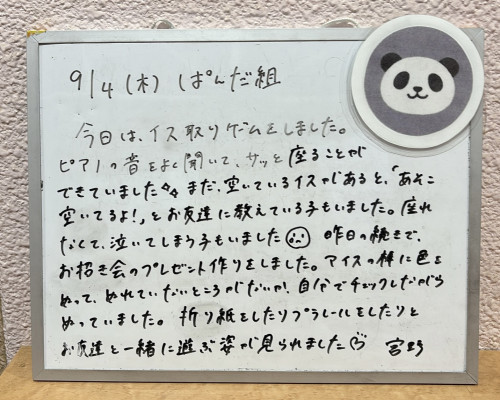 9/4(木) ぱんだ組
今日は、イス取りゲームをしました。
ピアノの音をよく聞いて、サッと座ることが
できていました✨まだ、空いているイスがあると、「あそこ
空いてるよ!」とお友達に教えている子もいました。座れ
なくて、泣いてしまう子もいました 昨日の続きで、
お招き会のプレゼント作りをしました。アイスの棒に色を
ぬって、ぬれていないところがないか、自分でチェックしながら
ぬっていました。折り紙をしたりプラレールをしたりと
お友達と一緒に遊ぶ姿が見られました♡ 宮野